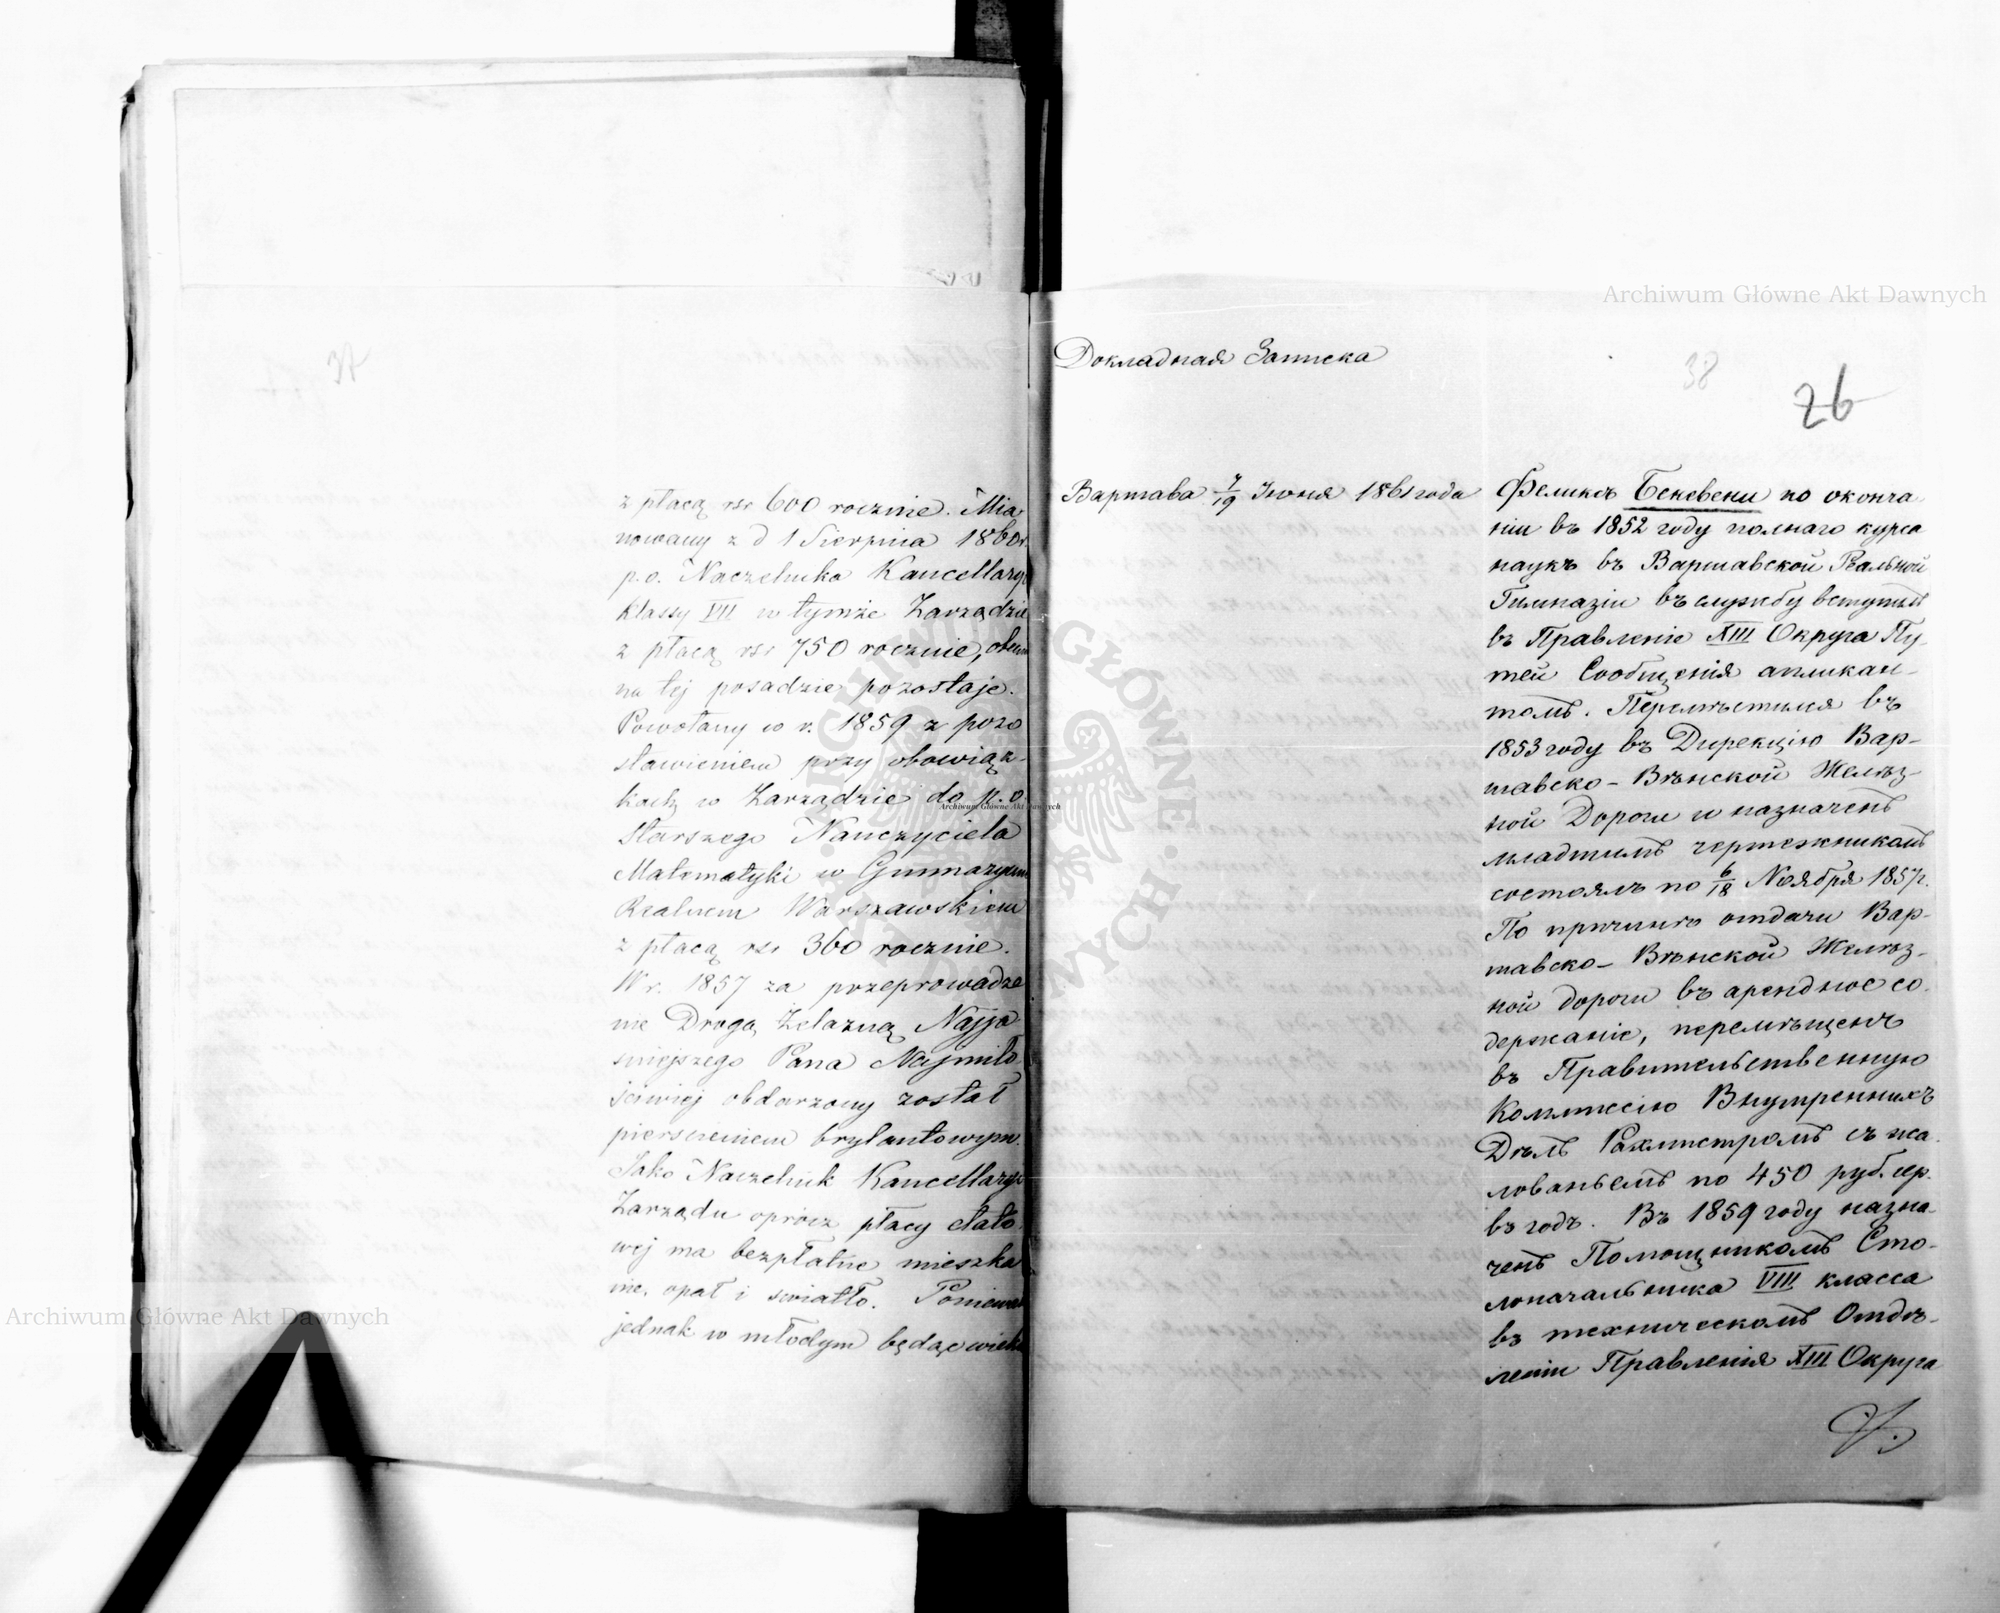 37
z płacą rsr 600 rocznie. Mia
nowany z d 1 Sierpnia 1860 r.
p.o. Naczelnika Kancellaryi
klassy VII w tymże Zarządzie
z płacą rsr 750 rocznie, obecn
na tej posadzie pozostaje.
Powołany w r. 1859 z pozo
stawieniem przy obowiąz-
kach w Zarządzie do p.o.
Starszego Nauczyciela
Matematyki w Gimnazyum
Realnem Warszawskiem
z płacą rsr 360 rocznie.
W r. 1857 za przeprowadze
nie Drogą Żelazną Najja
śniejszego Pana Najmiło
ściwiej obdarzony został
pierscieniem brylantowym.
Jako Naczelnik Kancellaryi
Zarządu oprócz płacy etato
wej ma bezpłatne mieszka
nie, opał i światło. Ponieważ
jednak w młodym będąc wieku
Докладная Записка
38
26
Варшава 7/19 Іюня 1861 года
Феликсъ Беневени по оконча
ніи въ 1852 году полнаго курса
наукъ въ Варшавской Реальной
Гимназіи въ службу вступилъ
въ Правленіе XIII Округа Пу-
тей Сообщенія апликан-
томъ. Перемѣстился въ
1853 году въ Дирекцію Вар-
шавско-Вѣнской Желѣз-
ной Дороги и назначенъ
младшимъ чертежникомъ
состоялъ по 6/18 Ноября 1857 г.
По причинѣ отдачи Вар-
шавско-Вѣнской Желѣз-
ной дороги въ арендное со-
держаніе, перемѣщенъ
въ Правительственную
Коммиссію Внутреннихъ
Дѣлъ Рахмистромъ съ жа-
лованьемъ по 450 руб. сер.
въ годъ. Въ 1859 году назна-
ченъ Помощникомъ Сто-
лоначальника VIII класса
въ техническомъ Отдѣ-
леніи Правленія XIII Округа
Archiwum Główne Akt Dawnych
Archiwum Główne Akt Dawnych
Archiwum Główne Akt Dawnych
ARCHIWUM GŁÓWNE AKT DAWNYCH